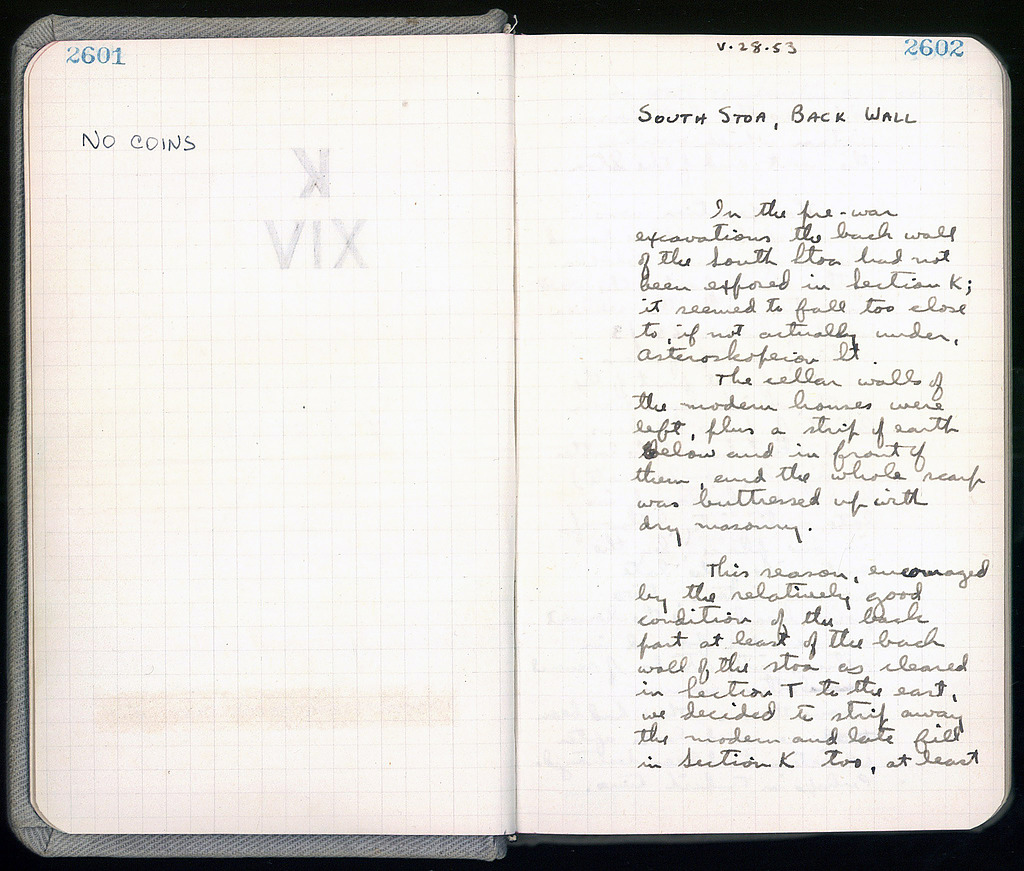 2601
NO COINS
K
XIV
V.28.53
2602
SOUTH STOA, BACK WALL
In the pre-war
excavations the back wall
of the South Stoa had not
been exposed in Section K;
it seemed to fall too close
to, if not actually under,
Asteroskopeion St.
The cellar walls of
the modern houses were
left, plus a strip of earth
below and in front of
them, and the whole scarp
was buttressed up with
dry masonry.
This season, encouraged
by the relatively good
condition of the back
part at least of the back
wall of the stoa as cleared
in Section T to the east,
we decided to strip away
the modern and late fill
in Section K too, at least